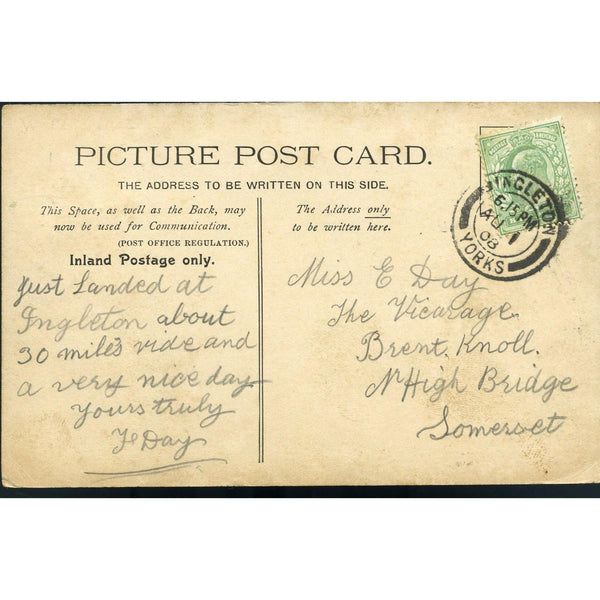 PICTURE POST CARD.
THE ADDRESS TO BE WRITTEN ON THIS SIDE.
This Space, as well as the Back, may
now be used for Communication.
(POST OFFICE REGULATION.)
Inland Postage only.
Just Landed at
Ingleton about
30 miles ride and
a very nice day
Yours truly
F Day
The Address only
to be written here.
Miss E Day
The Vicarage
Brent. Knoll.
Nr High Bridge
Somerset
INGLETON
6.15 PM
AU 1
08
YORKS